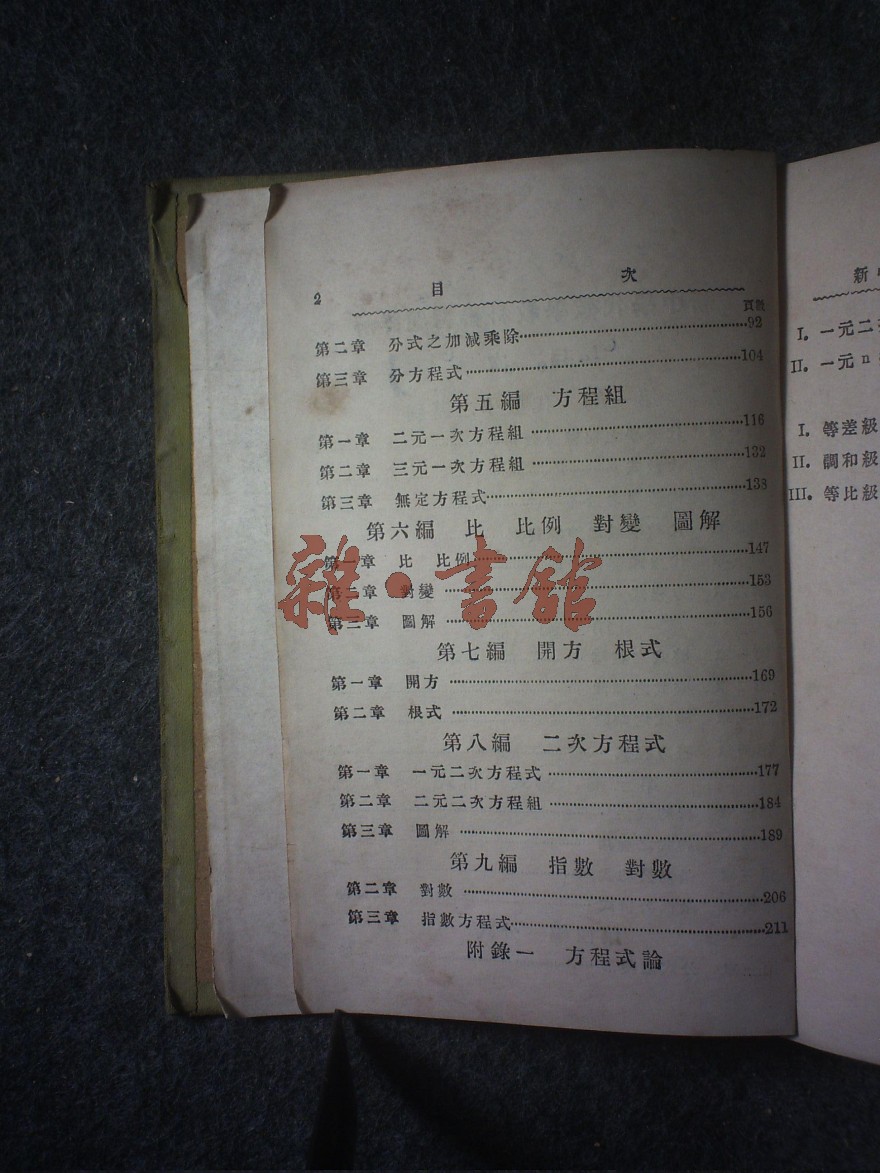 2 目 次
頁數
第二章 分式之加減乘除 92
第三章 分方程式 104
第五編 方程組
第一章 二元一次方程組 116
第二章 三元一次方程組 132
第三章 無定方程式 138
第六編 比 比例 對變 圖解
第一章 比 比例 147
第二章 對變 153
第三章 圖解 156
第七編 開方 根式
第一章 開方 169
第二章 根式 172
第八編 二次方程式
第一章 一元二次方程式 177
第二章 二元二次方程組 184
第三章 圖解 189
第九編 指數 對數
第二章 對數 206
第三章 指數方程式 211
附錄一 方程式論
雜·書館
新
I. 一元二
II. 一元 n
I. 等差級
II. 調和級
III. 等比級